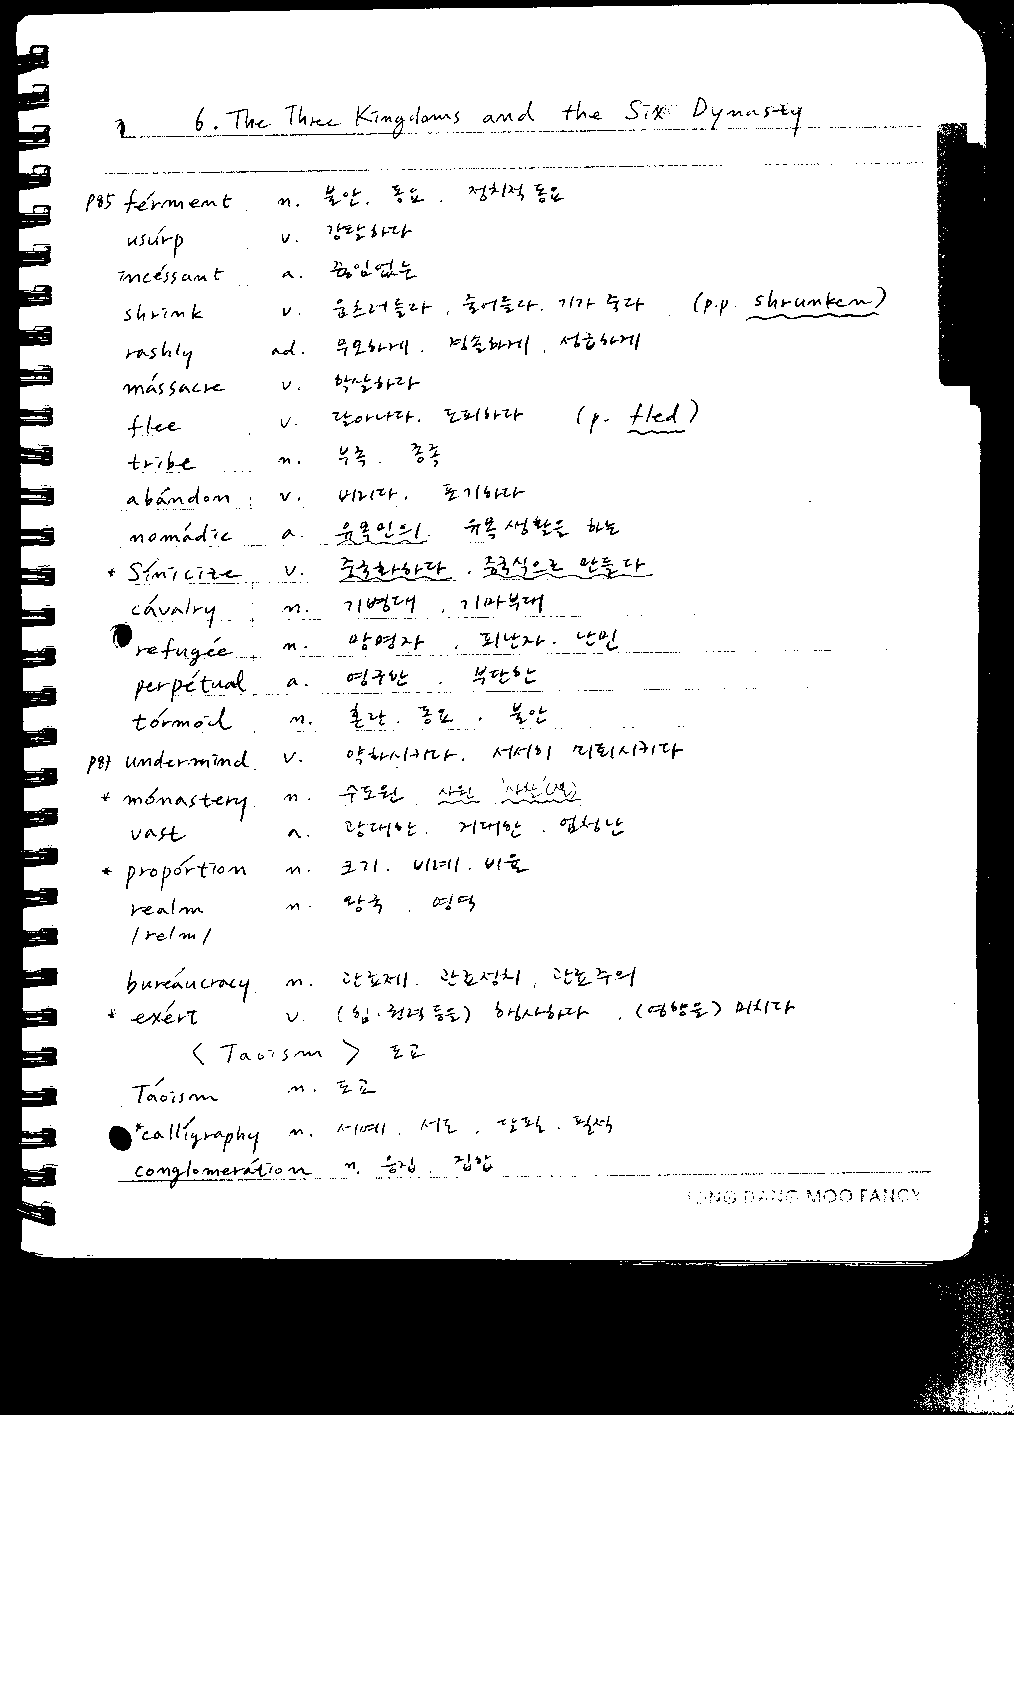 6. The Three Kingdoms and the Six Dynasty
p85 férment n. 불안. 동요. 정치적 동요
usúrp v. 강탈하다
incéssant a. 끊임없는
shrink v. 움츠러들다, 줄어들다. 기가 죽다 (p.p. shrunken)
rashly ad. 무모하게. 경솔하게, 성급하게
mássacre v. 학살하다
flee v. 달아나다. 도피하다 (p. fled)
tribe n. 부족. 종족
abándon v. 버리다. 포기하다
nomádic a. 유목민의 유목생활을 하는
* Sínicize v. 중국화하다, 중국식으로 만들다
cávalry n. 기병대, 기마부대
refugée n. 망명자, 피난자. 난민
perpétual a. 영구한, 부단한
tórmoil n. 혼란. 동요. 불안
p87 undermind v. 약화시키다. 서서히 퇴시키다
* mónastery n. 수도원 사원
vast a. 광대한. 거대한. 엄청난
* propórtion n. 크기. 비례. 비율
realm n. 왕국. 영역
/relm/
bureáucracy n. 관료제. 관료정치, 관료주의
* exért v. (힘·권력 등을) 행사하다. (영향을) 미치다
< Taoism > 도교
Táoism n. 도교
*callígraphy n. 서예. 서도. 달필. 필적
conglomerátion n. 응집. 집합
MOO FANCY